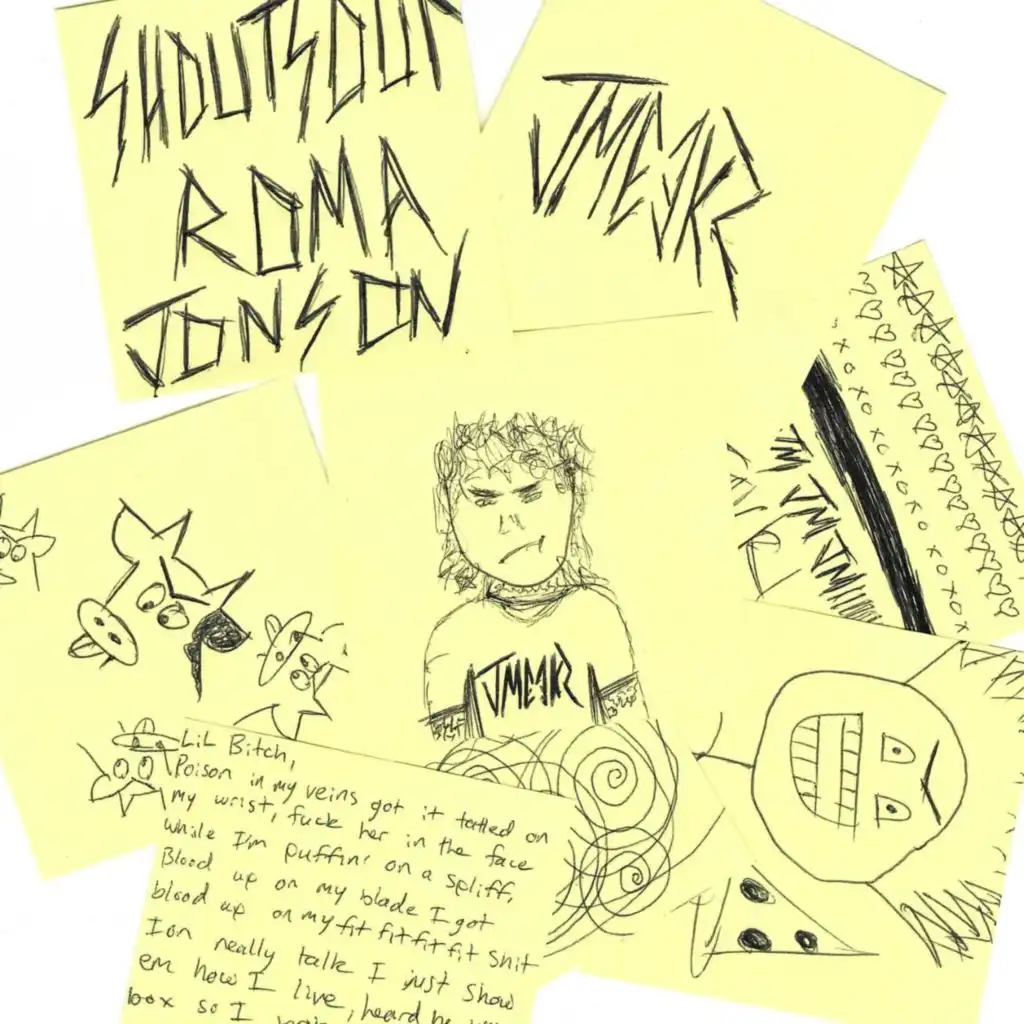 SHOUTSOUT
ROMA
JONSON
JMEMKR
JMEMKR
xoxoxoxoxoxoxox
LiL Bitch,
Poison in my veins got it tatted on
my wrist, fuck her in the face
while I'm puffin' on a spliff,
Blood up on my blade I got
blood up on my fit fit fit fit shit
Ion really talk I just show
em how I live, heard he
box so I